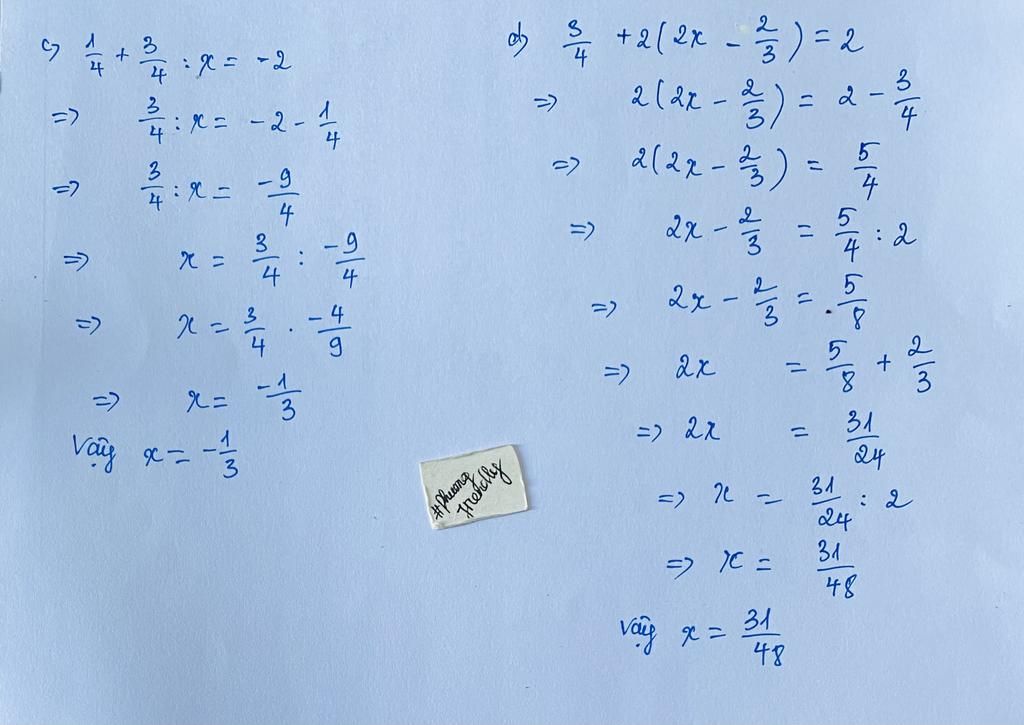 c) 1/4 + 3/4 : x = -2
=> 3/4 : x = -2 - 1/4
=> 3/4 : x = -9/4
=> x = 3/4 : -9/4
=> x = 3/4 . -4/9
=> x = -1/3
Vậy x = -1/3
d) 3/4 + 2(2x - 2/3) = 2
=> 2(2x - 2/3) = 2 - 3/4
=> 2(2x - 2/3) = 5/4
=> 2x - 2/3 = 5/4 : 2
=> 2x - 2/3 = 5/8
=> 2x = 5/8 + 2/3
=> 2x = 31/24
=> x = 31/24 : 2
=> x = 31/48
Vậy x = 31/48